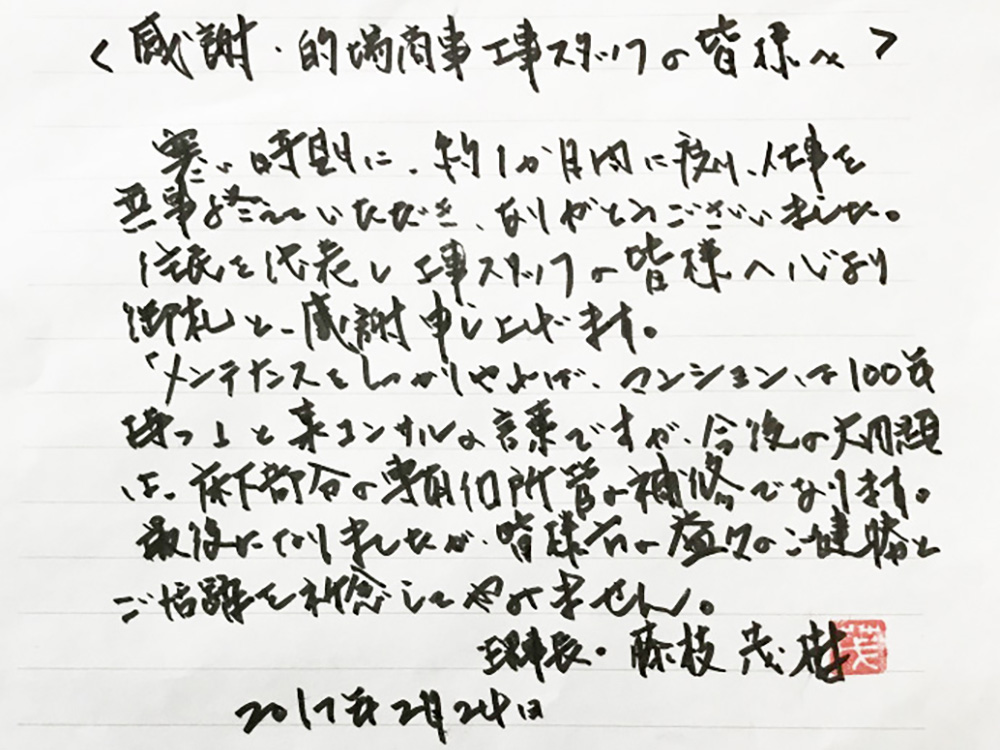 <感謝・的場商事工事スタッフの皆様へ>
寒い時期に、約1か月内に渡り、仕事を
無事終えていただき、ありがとうございました。
住民を代表し工事スタッフの皆様へ心より
御礼と、感謝申し上げます。
「メンテナンスをしっかりやれば、マンションは100年
持つ」と某コンサルの言葉ですが、今後の大問題
は、床下部分の専有個所管の補修であります。
最後になりましたが、皆様方の益々のご健勝と
ご活躍を祈念してやみません。
理事長・藤枝茂樹
茂
2017年2月24日